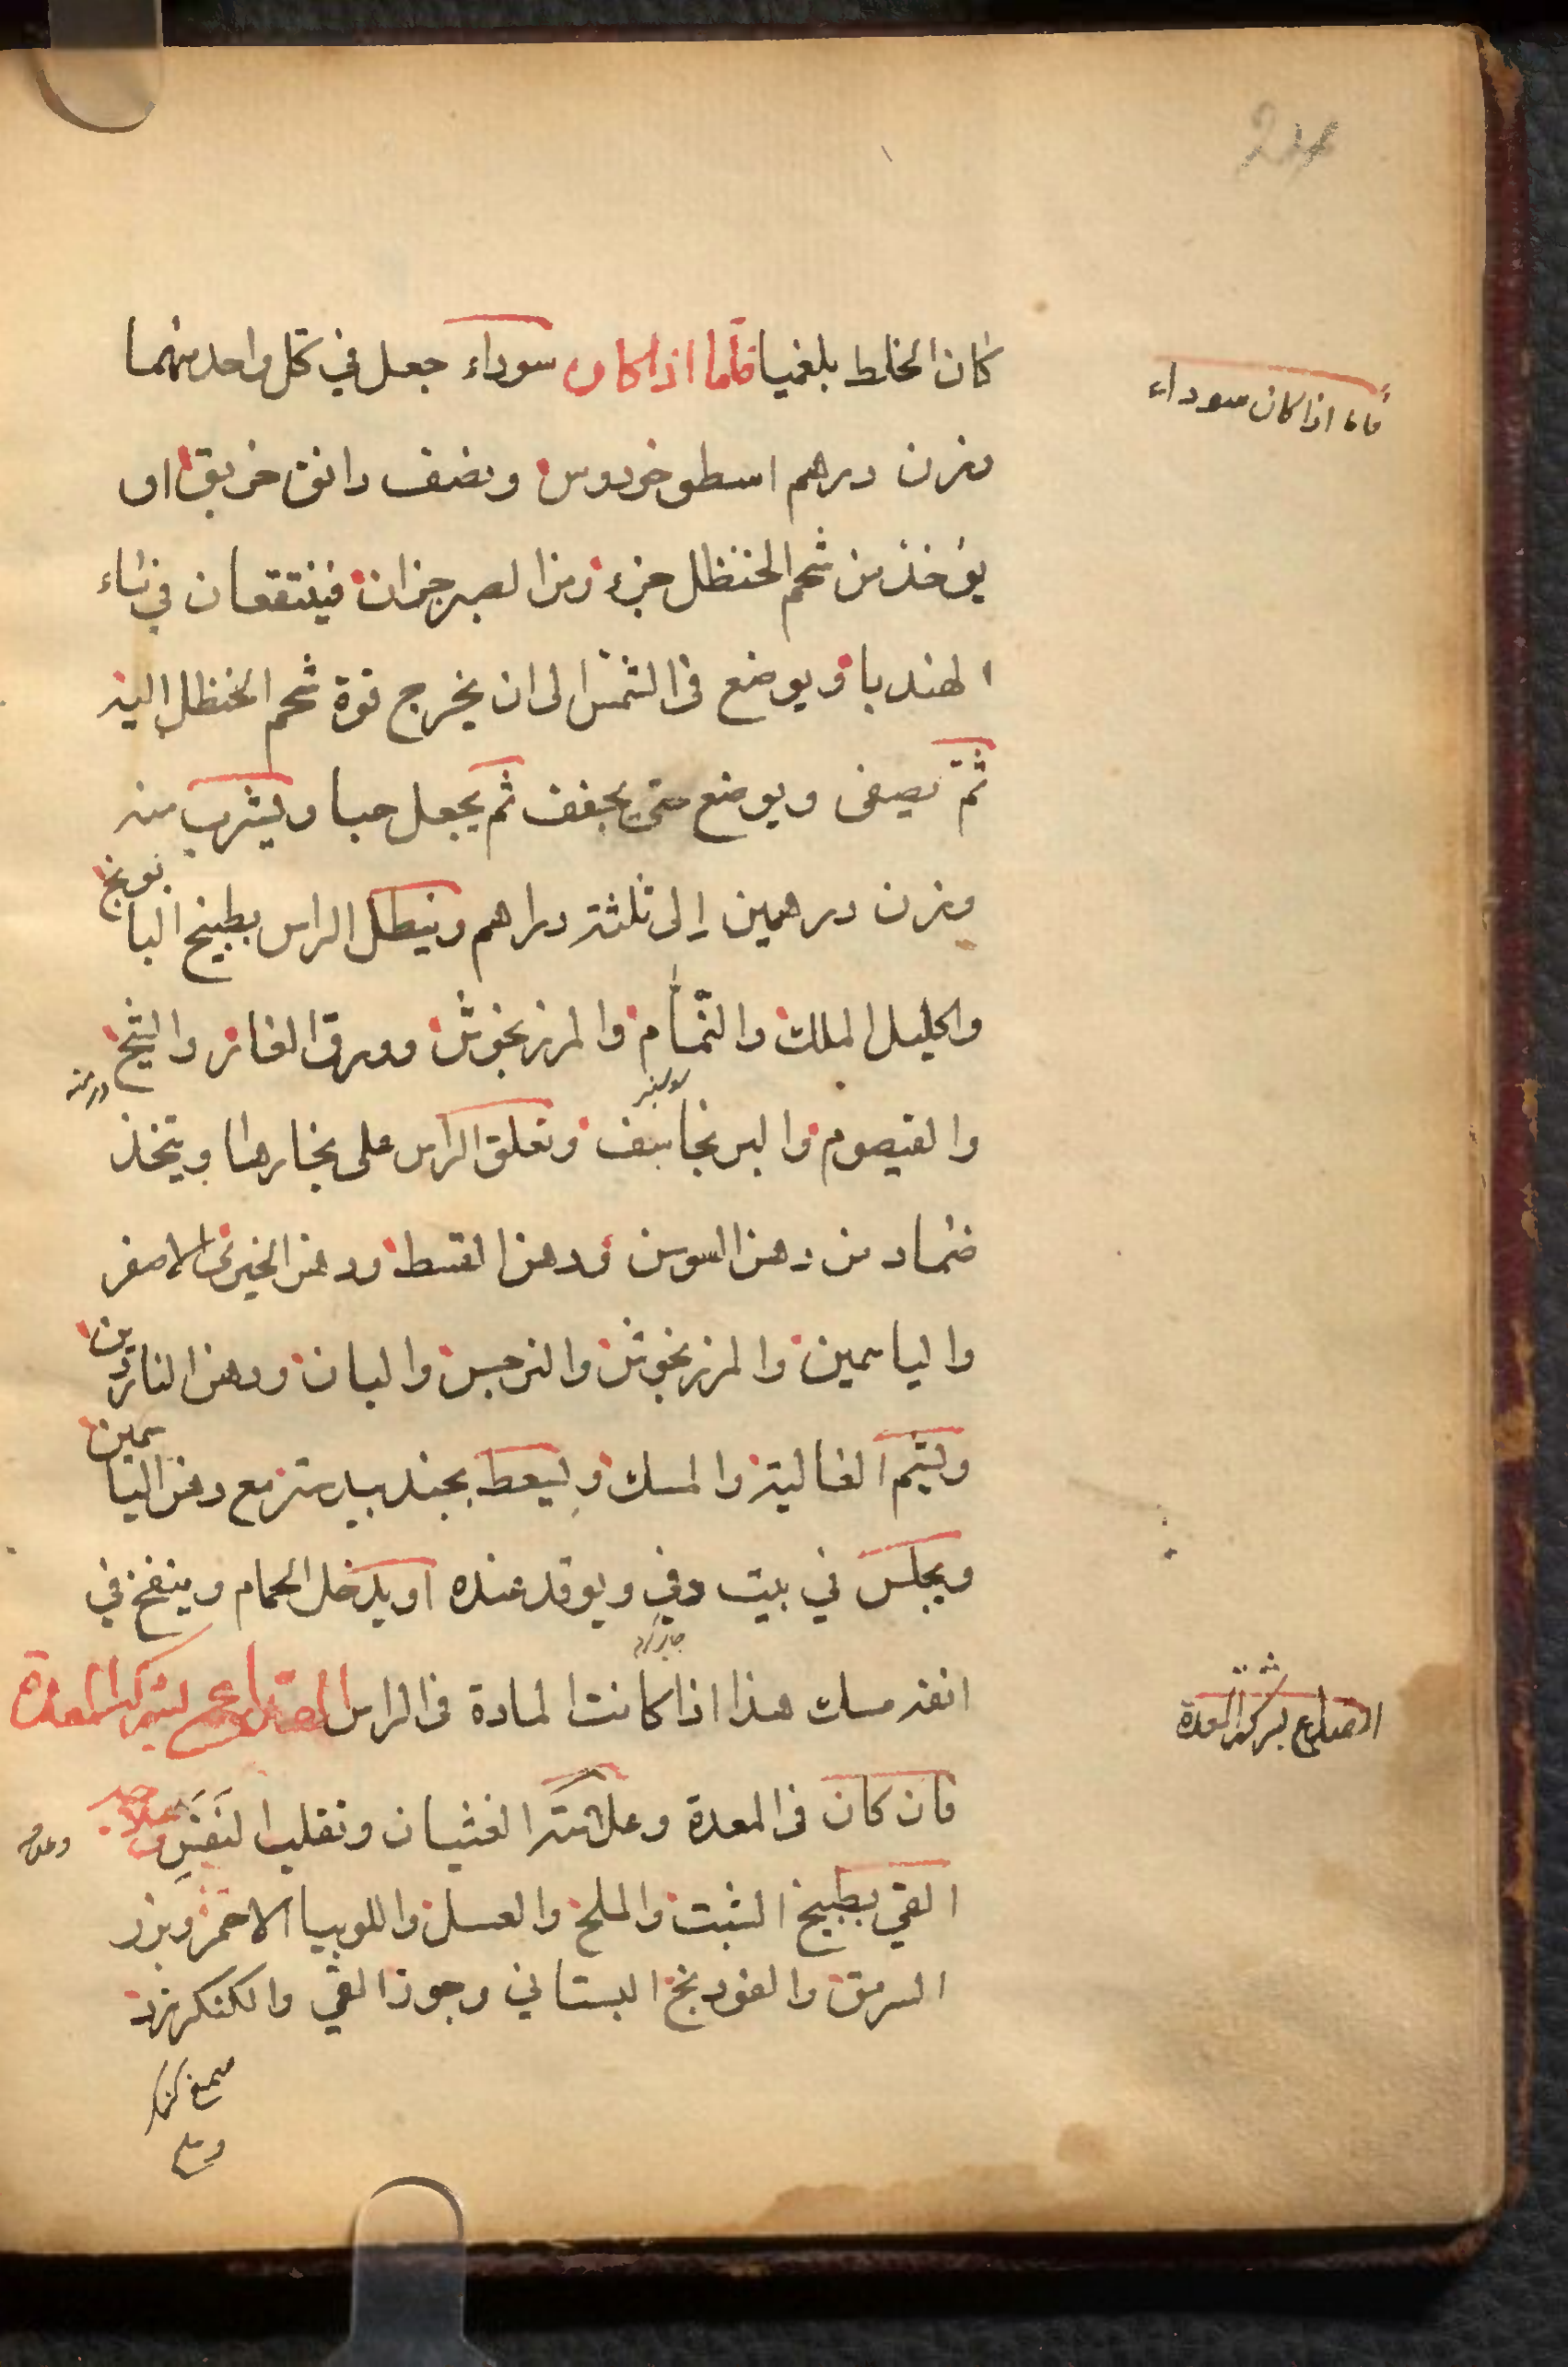 24
كان الخلط بلغميا فاما اذا كان سوداء جعل في كل واحد منهما
فاما اذا كان سوداء
وزن درهم اسطوخودوس ونصف دانق خربق او
يؤخذ من شحم الحنظل جزء ومن الصبر جزان فينتقعان في ماء
الهندبا ويوضع في الشمس الى ان يخرج قوة شحم الحنظل اليه
ثم يصفى ويوضع حتى يجفف ثم يجعل حبا ويشرب منه
وزن درهمين الى ثلثة دراهم وينطل الراس بطبيخ البابونج
واكليل الملك والنمام والمرزنجوش وورق الغار والشيح
درمنه
والقيصوم والبرنجاسف وتعلق الراس على بخارها ويتخذ
ضماد من دهن السوسن ودهن القسط ودهن الخيري الاصفر
والياسمين والمرزنجوش والنرجس والبان ودهن الناردين
ويشم الغالية والمسك ويسعط بجندبيدستر مع دهن الياسمين
ويجلس في بيت دفي ويوقد عنده او يدخل الحمام وينفخ في
انفه مسك هذا اذا كانت المادة في الراس الصداع بشركة المعدة
الصداع بشركة المعدة
فان كان في المعدة وعلامته الغثيان وتقلب النفس
القي بطبيخ الشبت والملح والعسل واللوبيا الاحمر وبزر
السرمق والفودنج البستاني وجوز القي والكنكرزد
صمغ كنكر